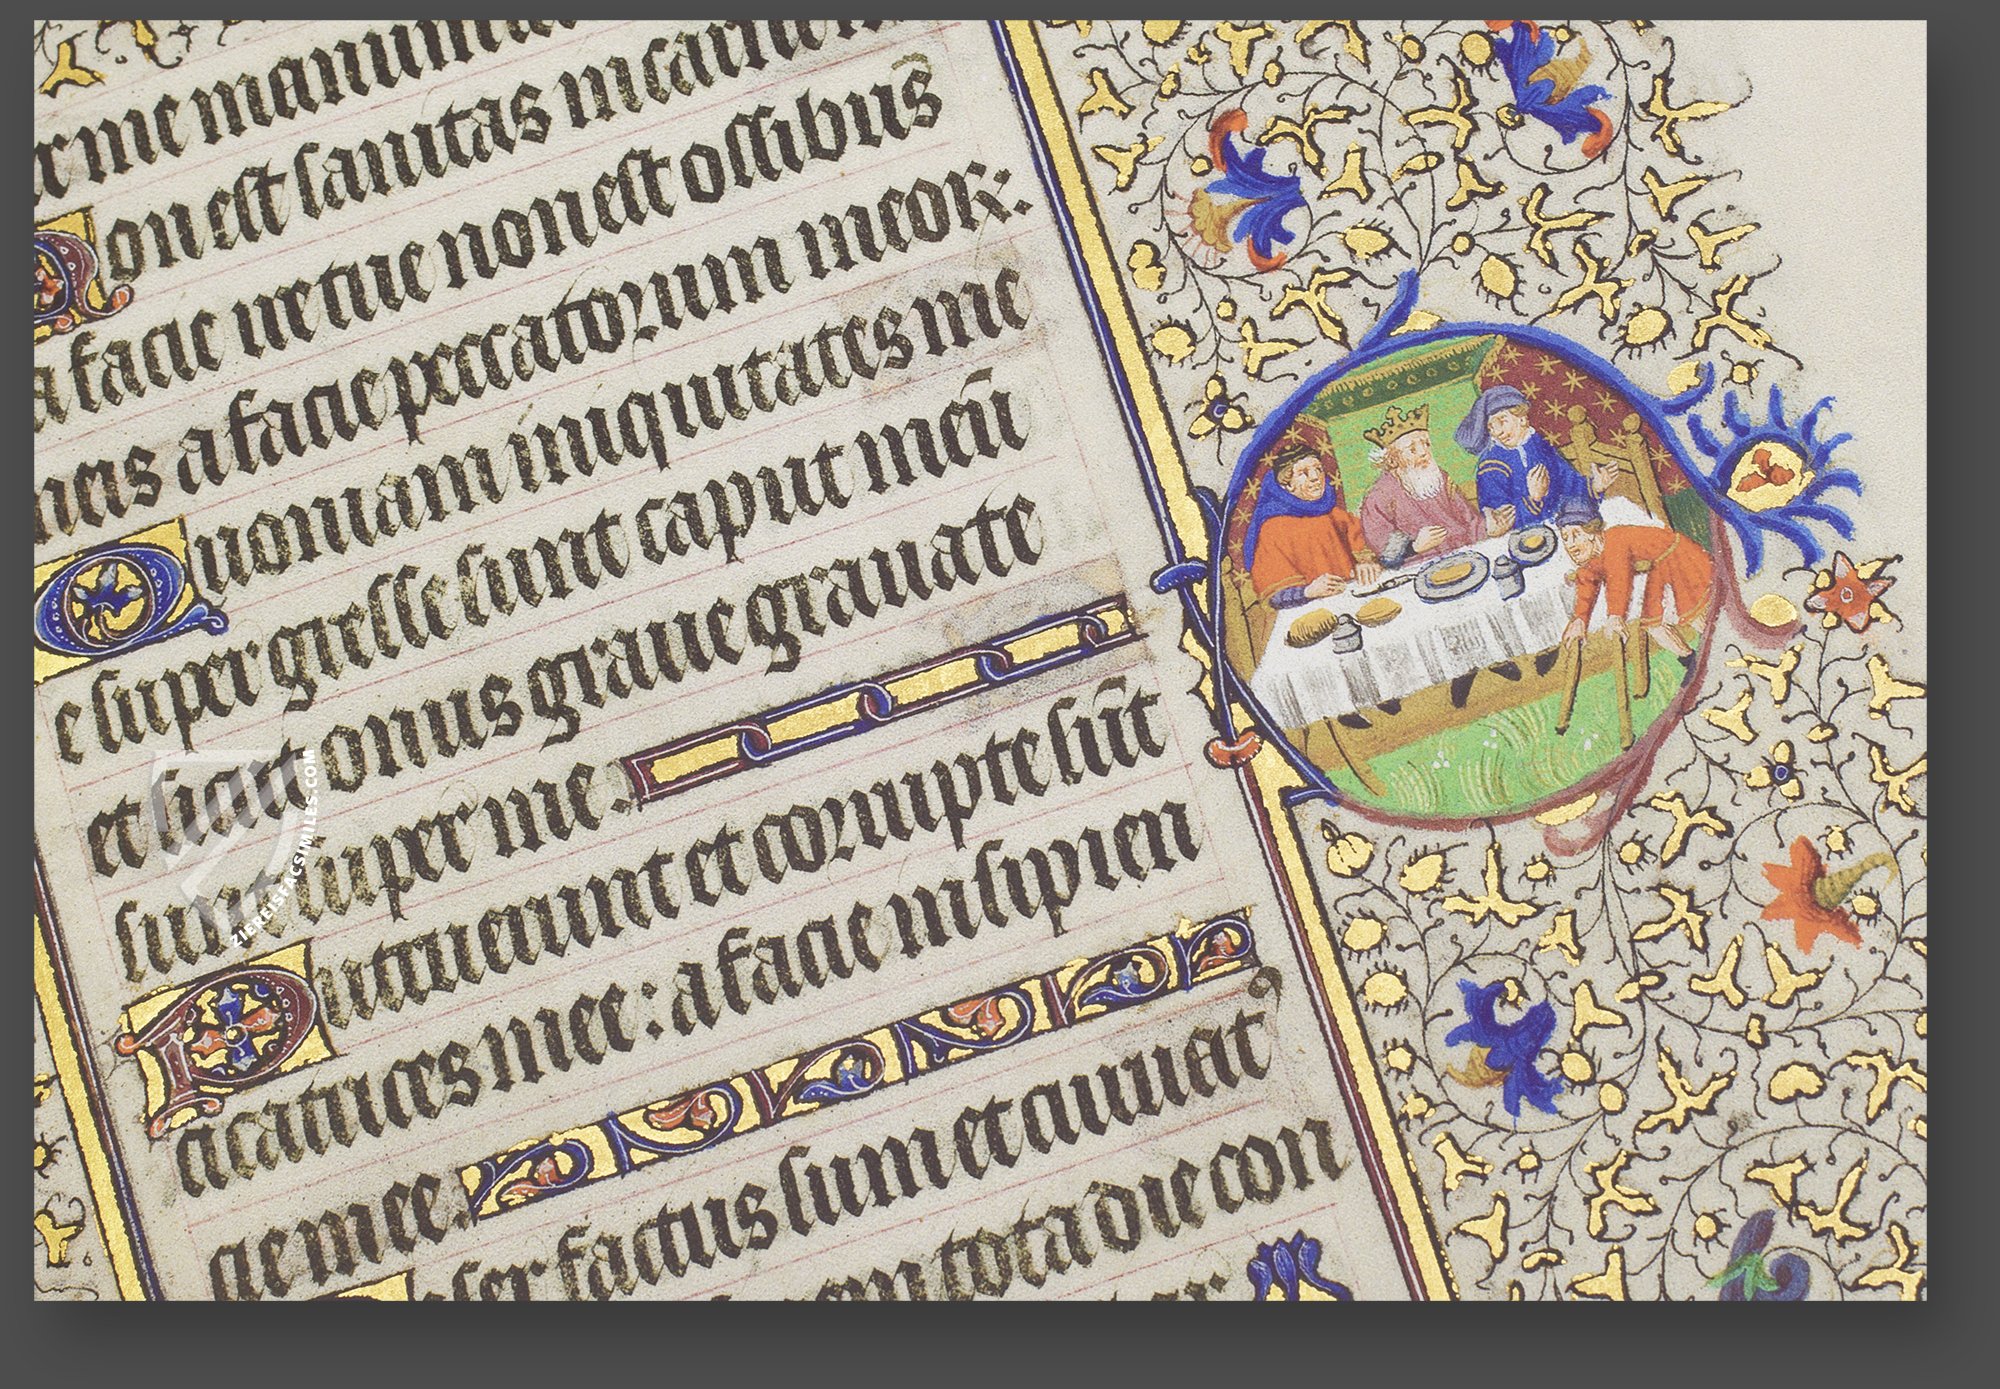 r me manum
on est sanitas in carne
a facie ire tue non est ossibus
meis a facie peccatorum meor:
uoniam iniquitates me
e super gresse sunt caput meū
et sicut onus graue grauate
sunt super me.
utruerunt et corrupte sūt
cicatrices mee: a facie insipien
cie mee.
ser factus sum et curuat
tota die con
ZIEREISFACSIMILES.COM